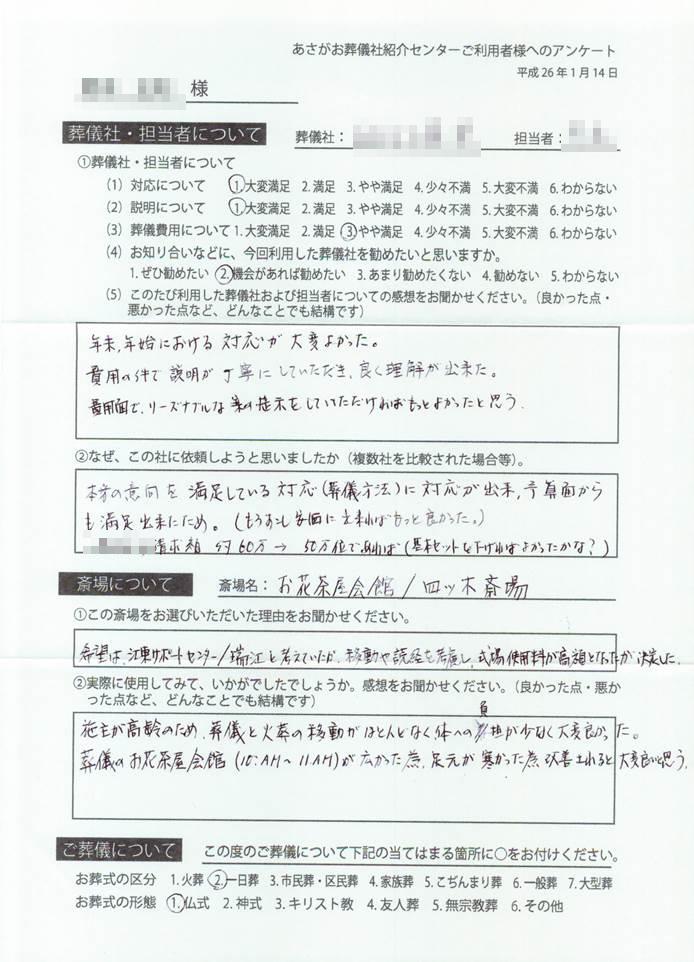 あさがお葬儀社紹介センターご利用者様へのアンケート
平成26年1月14日
様
葬儀社・担当者について 葬儀社： 担当者：
①葬儀社・担当者について
（1）対応について 1.大変満足 2.満足 3.やや満足 4.少々不満 5.大変不満 6.わからない
（2）説明について 1.大変満足 2.満足 3.やや満足 4.少々不満 5.大変不満 6.わからない
（3）葬儀費用について 1.大変満足 2.満足 3.やや満足 4.少々不満 5.大変不満 6.わからない
（4）お知り合いなどに、今回利用した葬儀社を勧めたいと思いますか。
1.ぜひ勧めたい 2.機会があれば勧めたい 3.あまり勧めたくない 4.勧めない 5.わからない
（5）このたび利用した葬儀社および担当者についての感想をお聞かせください。（良かった点・
悪かった点など、どんなことでも結構です）
年末,年始における対応が大変よかった。
費用の件で説明が丁寧にしていただき、良く理解が出来た。
費用面で、リーズナブルな案の提示をしていただければもっとよかったと思う.
②なぜ、この社に依頼しようと思いましたか（複数社を比較された場合等）。
の意向を満足している対応(葬儀方法)に対応が出来,予算面から
も満足出来たため。(もう少し安価に出来ればもっと良かった。)
請求額 約60万→50万位であれば(基本セットを下げればよかったかな?)
斎場について 斎場名：お花茶屋会館/四ツ木斎場
①この斎場をお選びいただいた理由をお聞かせください。
希望は、江東サポートセンター/瑞江と考えていたが、移動や読経を考慮し、式場使用料が高額となったが決定した.
②実際に使用してみて、いかがでしたでしょうか。感想をお聞かせください。（良かった点・悪か
った点など、どんなことでも結構です）
施主が高齢のため、葬儀と火葬の移動がほとんどなく体への負担が少なく大変良かった。
葬儀のお花茶屋会館(10:AM～11AM)が広かった為,足元が寒かった為改善されると大変良いと思う.
ご葬儀について この度のご葬儀について下記の当てはまる箇所に○をお付けください。
お葬式の区分 1.火葬 2.一日葬 3.市民葬・区民葬 4.家族葬 5.こぢんまり葬 6.一般葬 7.大型葬
お葬式の形態 1.仏式 2.神式 3.キリスト教 4.友人葬 5.無宗教葬 6.その他